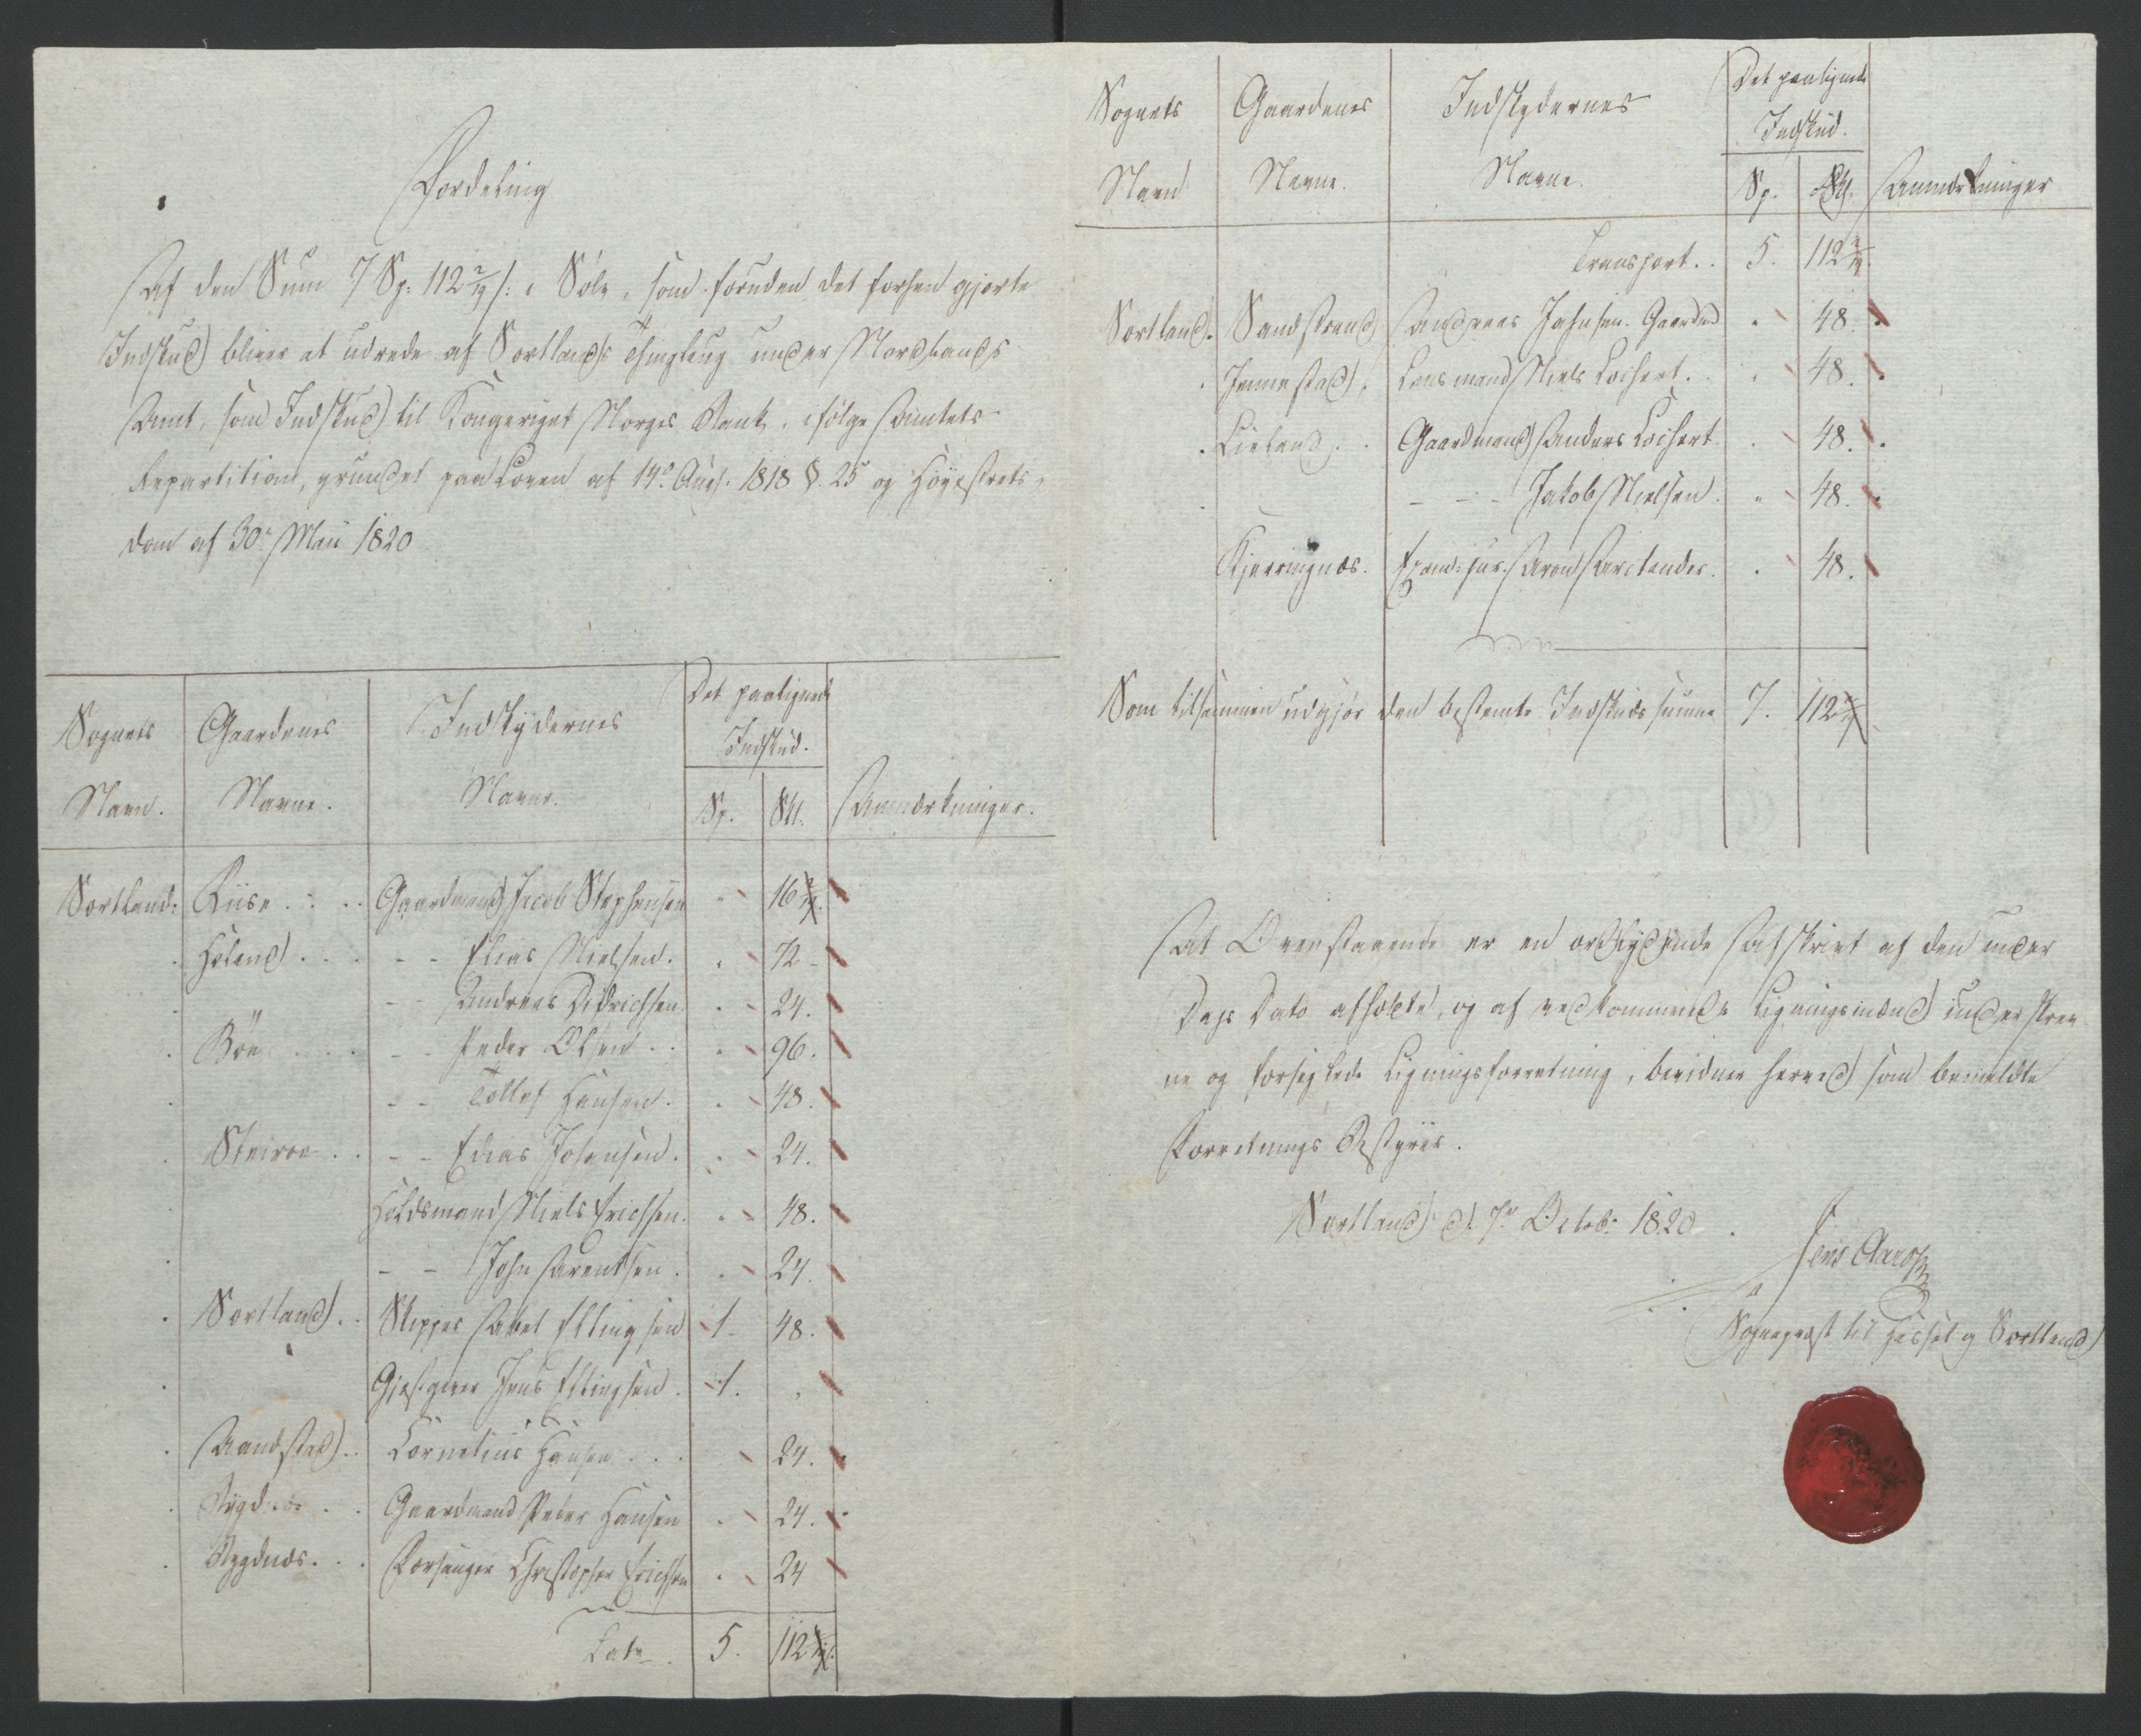 Fordeling
Af den Sum 7 Sp: 112 2/4 s: i Sölv, som foruden det forhen gjorte
Indskud bliver at udrede af Sortlands Thinglaug under Nordlands
Amt, som Indskud til Kongeriget Norges Bank, ifölge Amtets
Repartition, grundet paa Loven af 14de Aug. 1818 §. 25 og Höyestrets
dom af 30te Maii 1820
Sognets Gaardenes Indskydernes Det paalignede
Indskud.
Navn. Navne. Navne. Sp. Sk. Anmærkninger.
Sortland: Riise . . . Gaardmand Jacob Stephensen " 16
Holand . . . - - Elias Nielsen. " 72 -
- - Andreas Didrichsen " 24.
Böe . . . - - Peder Olsen . . " 96.
- - Tollef Hansen. " 48.
Steiroe . . - - Edias Johansen. " 24.
Huusmand Niels Erichsen. " 48.
- - John Arentsen. " 24.
Sortland. . Skipper Abel Ellingsen 1 - 48.
Gjestgiver Jens Ellingsen. 1. "
Aandstad . . Cornelius Hansen . . . 24.
. . Gaardmand Peder Hansen " 24.
Rygdnæs . . . Forsanger Christopher Erichsen " 24
Late. 5. 112
Sognets Gaardenes Indskydernes Det paalignede
Indskud.
Navn Navne. Navne. Sp. Sk. Anmærkninger
Transport. . 5. 112 2/4.
Sortland. Sandstrand Andreas Johnsen. Gaardmd " 48.
Jennestad, Lensmand Niels Lochert. . " 48.
Lieland. . Gaardmand Anders Lochert " 48.
- - - Jakob Nielsen. " 48.
Kjerringnæs. Exam: jur. Arond Arctander. " 48.
Som tilsammen udgjör den bestemte Indskuds summe 7. 112
At Ovenstaaende er en ordlydende Afskrivt af den under
Dags Dato afholdte, og af vedkommende Ligningsmænd underskrev
ne og forseglede Ligningsforretning, bevidner herved som bemeldte
Forretnings Bestyrer.
Sortland d. 7de Octobr 1820.
Jens
Sognepræst til Hassel og Sortland